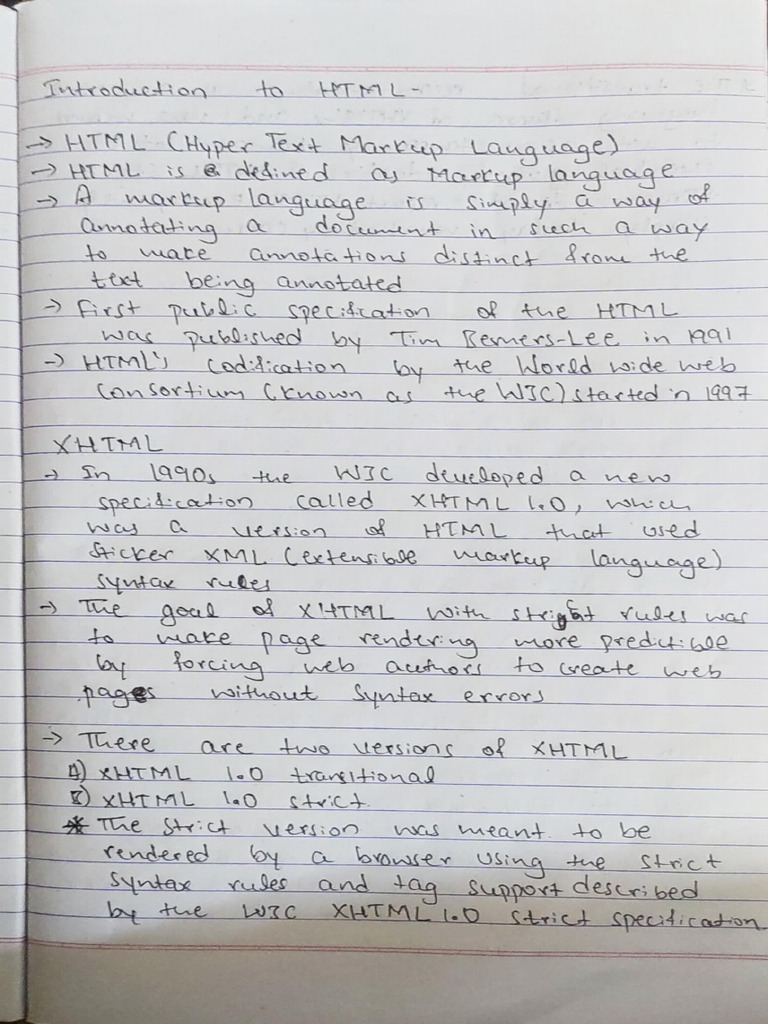 Introduction to HTML-
→ HTML (Hyper Text Markup Language)
→ HTML is defined as Markup language
→ A markup language is simply a way of
annotating a document in such a way
to make annotations distinct from the
text being annotated
→ First public specification of the HTML
was published by Tim Berners-Lee in 1991
→ HTML's codification by the World wide web
Consortium (known as the W3C) started in 1997
XHTML
→ In 1990s the W3C developed a new
specification called XHTML 1.0, which
was a version of HTML that used
Sticker XML (extensible markup language)
syntax rules
→ The goal of XHTML with stright rules was
to make page rendering more predictible
by forcing web authors to create web
pages without syntax errors
→ There are two versions of XHTML
1) XHTML 1.0 transitional
2) XHTML 1.0 strict.
* The strict version was meant to be
rendered by a browser using the strict
syntax rules and tag support described
by the W3C XHTML 1.0 strict specification